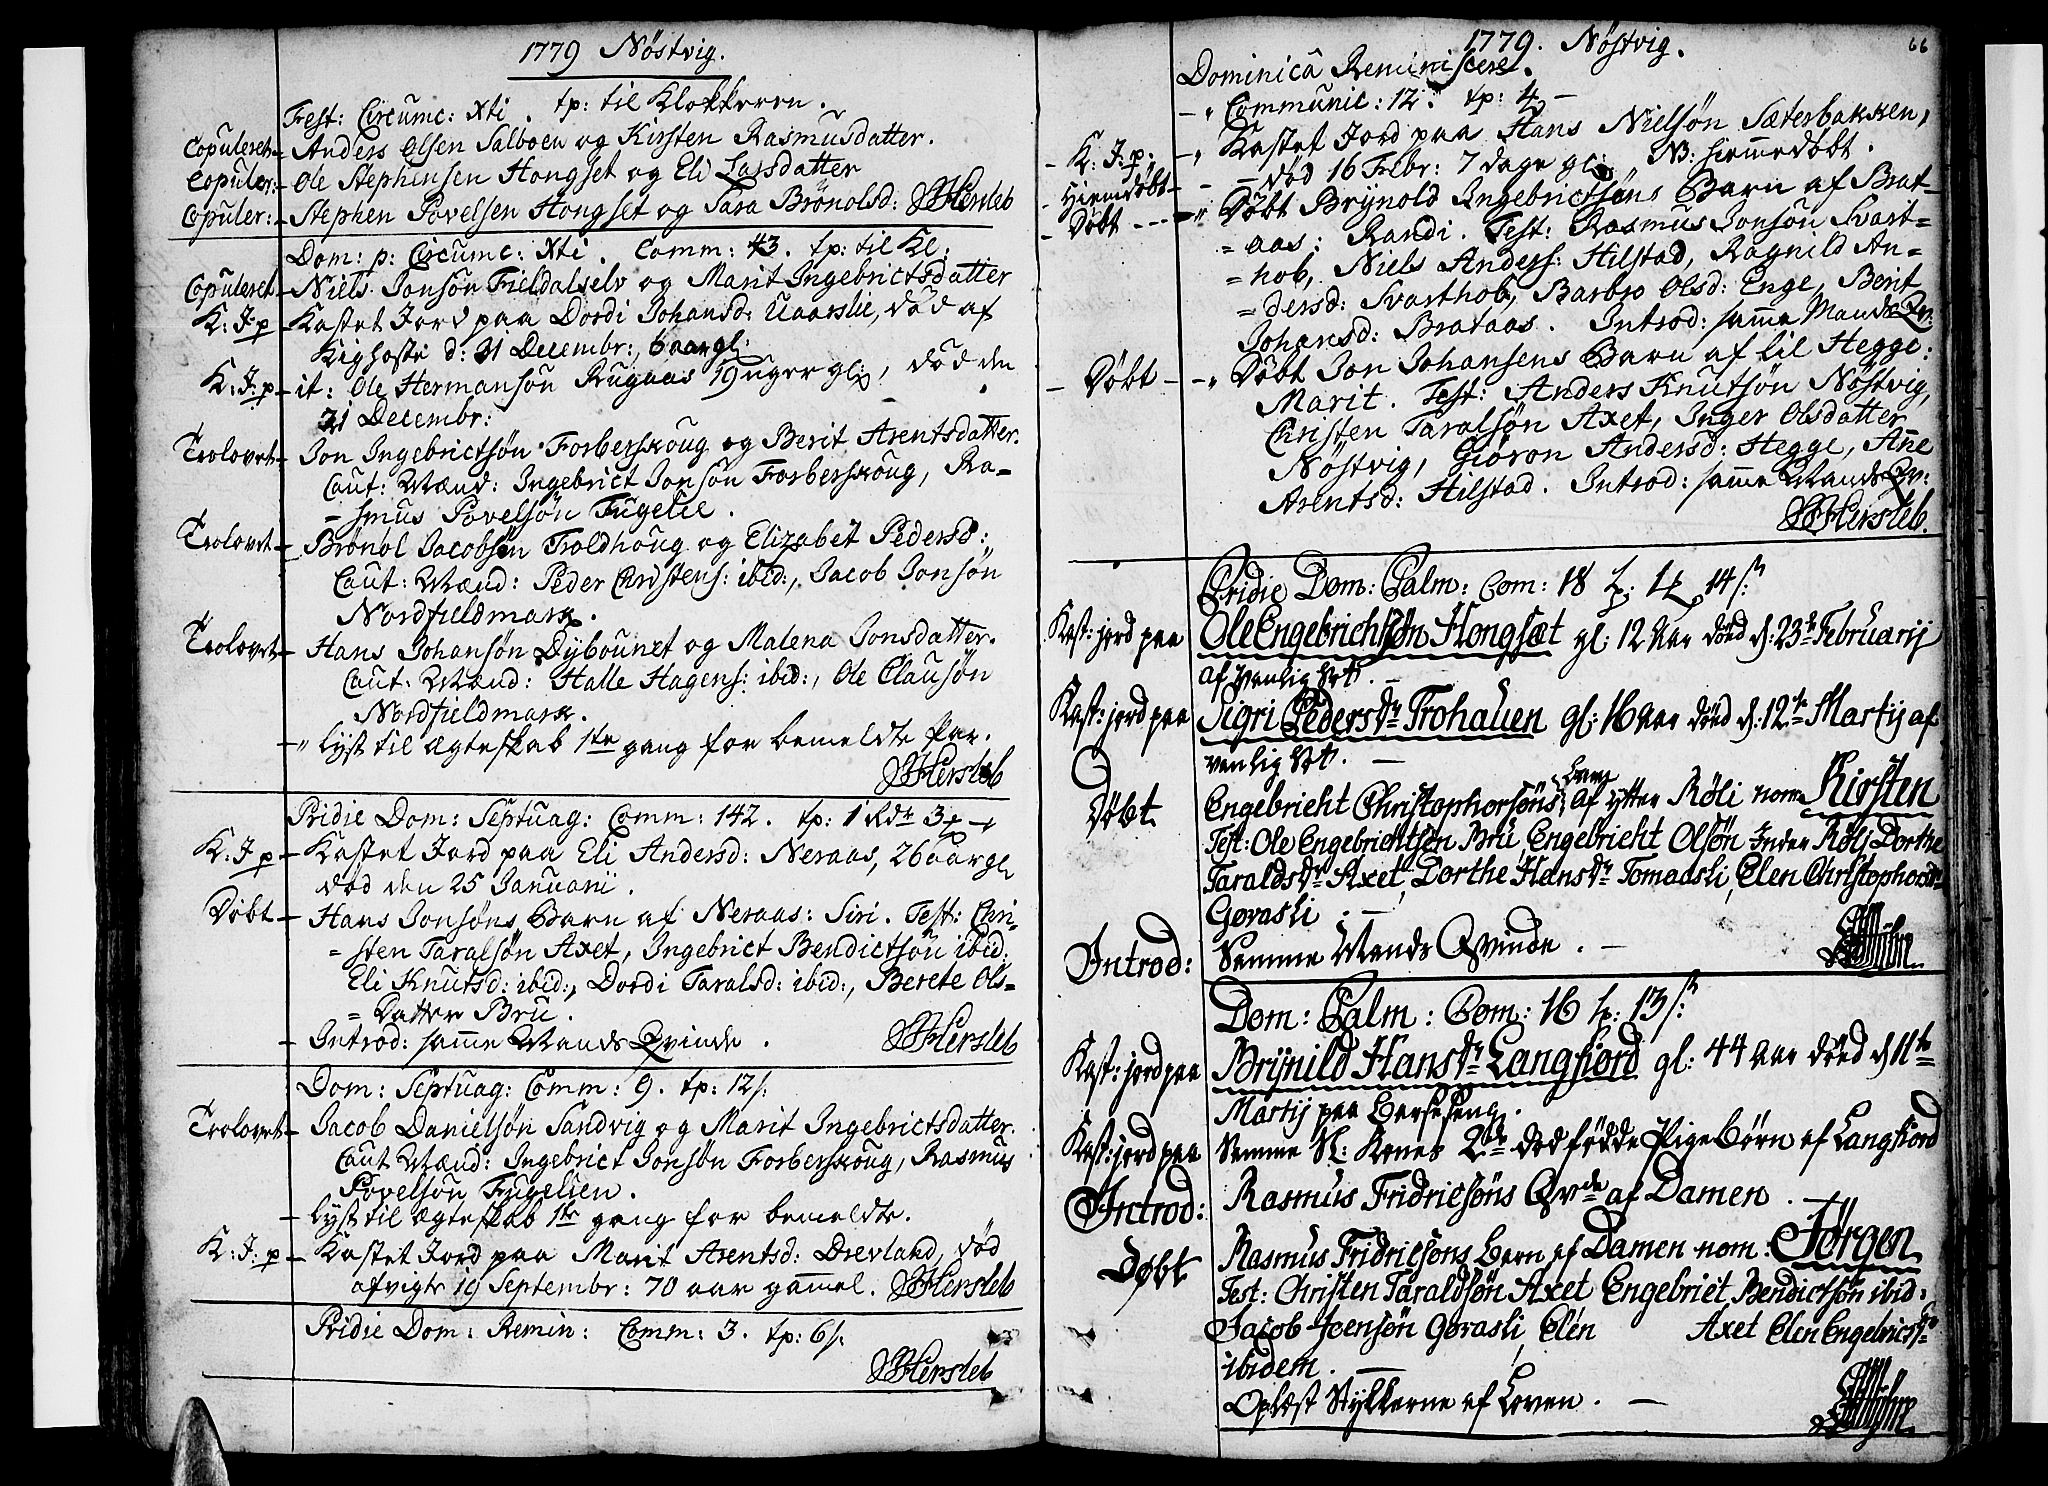 1779 Nöstvig.
Fest: Circumc: Xti. tp: til Klokkeren.
Copuleret – Anders Olsen Salboen og Kirsten Rasmusdatter.
Copuler: – Ole Stephensen Hongset og Eli Larsdatter
Copuler: – Stephen Povelsen Hongset og Sara Brönolsd: Hersleb
Dom: p: Circumc: Xti. Comm: 43. tp: til Kl:
Copuleret – Niels Jonsön Fieldalselv og Marit Ingebrictsdatter
K: J: p – Kastet Jord paa Dordi Johansd: Uaarslie, död af
Kighoste d: 31 Decembr:, 6 aar gl:
K: J: p – it: Ole Hermansön Rugaas 19 uger gl:, död den
21 Decembr:
Trolovet – Jon Ingebrictsön Forberskoug og Berit Arentsdatter.
Caut: Mænd: Ingebrict Jonsön Forberskoug, Ra=
= smus Povelsön Fugelie.
Trolovet – Brönol Jacobsön Troldhoug og Elizabet Pedersd:
Caut: Mænd: Peder Christens: ibid:, Jacob Jonsön
Nordfieldmark.
Trolovet – Hans Johansön Dybounet og Malena Jonsdatter.
Caut: Mænd: Halle Hagens: ibid:, Ole Clausön
Nordfieldmark.
–" lyst til Ægteskab 1ste gang for bemeldte Par.
Hersleb
Pridie Dom: Septuag: Comm: 142. tp: 1 Rdr 3
K: J: p – Kastet Jord paa Eli Andersd: Neraas, 26 aar gl
död den 25 Januarii.
Döbt – Hans Jonsöns Barn af Neraas: Siri. Test: Chri=
= sten Taralsön Axet, Ingebrict Bendictsön ibid:
Eli Knutsd: ibid:, Dordi Taralsd: ibid:, Berete Ols=
= Datter Bru.
– Introd: samme Mands Qvinde. Hersleb
Dom: Septuag: Comm: 9. tp: 12 s:
Trolovet – Jacob Danielsön Sandvig og Marit Ingebrictsdatter.
Caut Mænd: Ingebrict Jonsön Forberskoug, Rasmus
Povelsön Fugelien.
– lyst til Ægteskab 1ste gang for bemeldte.
K: J: p – Kastet Jord paa Marit Arentsd: Drevland, död
afvigte 19 Septembr: 70 aar gammel. Hersleb
Pridie Dom: Remin: Comm: 3. tp: 6 s:
Hersleb
1779. Nöstvig. 66
Dominicâ Reminiscere.
–" Communic: 12. tp: 4
– K: J: p. –" Kastet Jord paa Hans Nielsön Sæterbakken,
– Hiemdöbt – – död 16 Febr: 7 dage gl: NB: hiemmedöbt.
– Döbt – – –" Döbt Brynold Ingebrictsöns Barn af Brat=
= aas: Randi. Test: Rasmus Jonsön Svart=
= hob, Niels Anders: Hilstad, Ragnild An=
= dersd: Svarthob, Barbro Olsd: Enge, Berit
Johansd: Brataas. Introd: samme Mands Qv:
– Döbt – –" Döbt Jon Johansens Barn af lil Hegge:
Marit. Test: Anders Knutsön Nöstvig,
Christen Taralsön Axet, Inger Olsdatter
Nöstvig, Giöron Andersd: Hegge, Anne
Arentsd: Hilstad. Introd: samme Mands Qv:
Hersleb.
Pridie Dom: Palm: Com: 18 tp: 14 s:
Kast: jord paa Ole Engebrichtsön Hongsæt gl: 12 Aar död d: 23de Februarij
af vanlig Sot. –
Kast: jord paa Sigri Pedersdr Trohauen gl: 16 Aar död d: 12te Martij af
vanlig Sot. –
Döbt Engebricht Christophorsöns Barn af ytter Röli nom: Kirsten
Test: Ole Engebrichtsen Bru, Engebricht Olsön Inder Rölj Dorthe
Taraldsdr Axet, Dorthe Hansdr Tomaasli, Elen Christophersdr
Gøvasli. –
Introd: Samme Mands Qvinde. –
Dom: Palm: Com: 16 tp: 13 s:
Kast: jord paa Brÿnild Hansdr Langfiord gl: 44 Aar död d 11te
Martij paa Barselseng.
Kast: jord paa Samme Sl: Kones 2de dödfödde Pigebörn af Langfiord
Introd: Rasmus Fridricsöns Qvde af Damen.
Döbt Rasmus Fridricsöns Barn af Damen nom: Jörgen
Test: Christen Taraldsön Axet Engebrict Bendictsön ibid:
Jacob Joensön Gøvasli, Elen Axet Elen Engebricsdr
ibidem. –
Oplæst Stykkerne af Loven. –